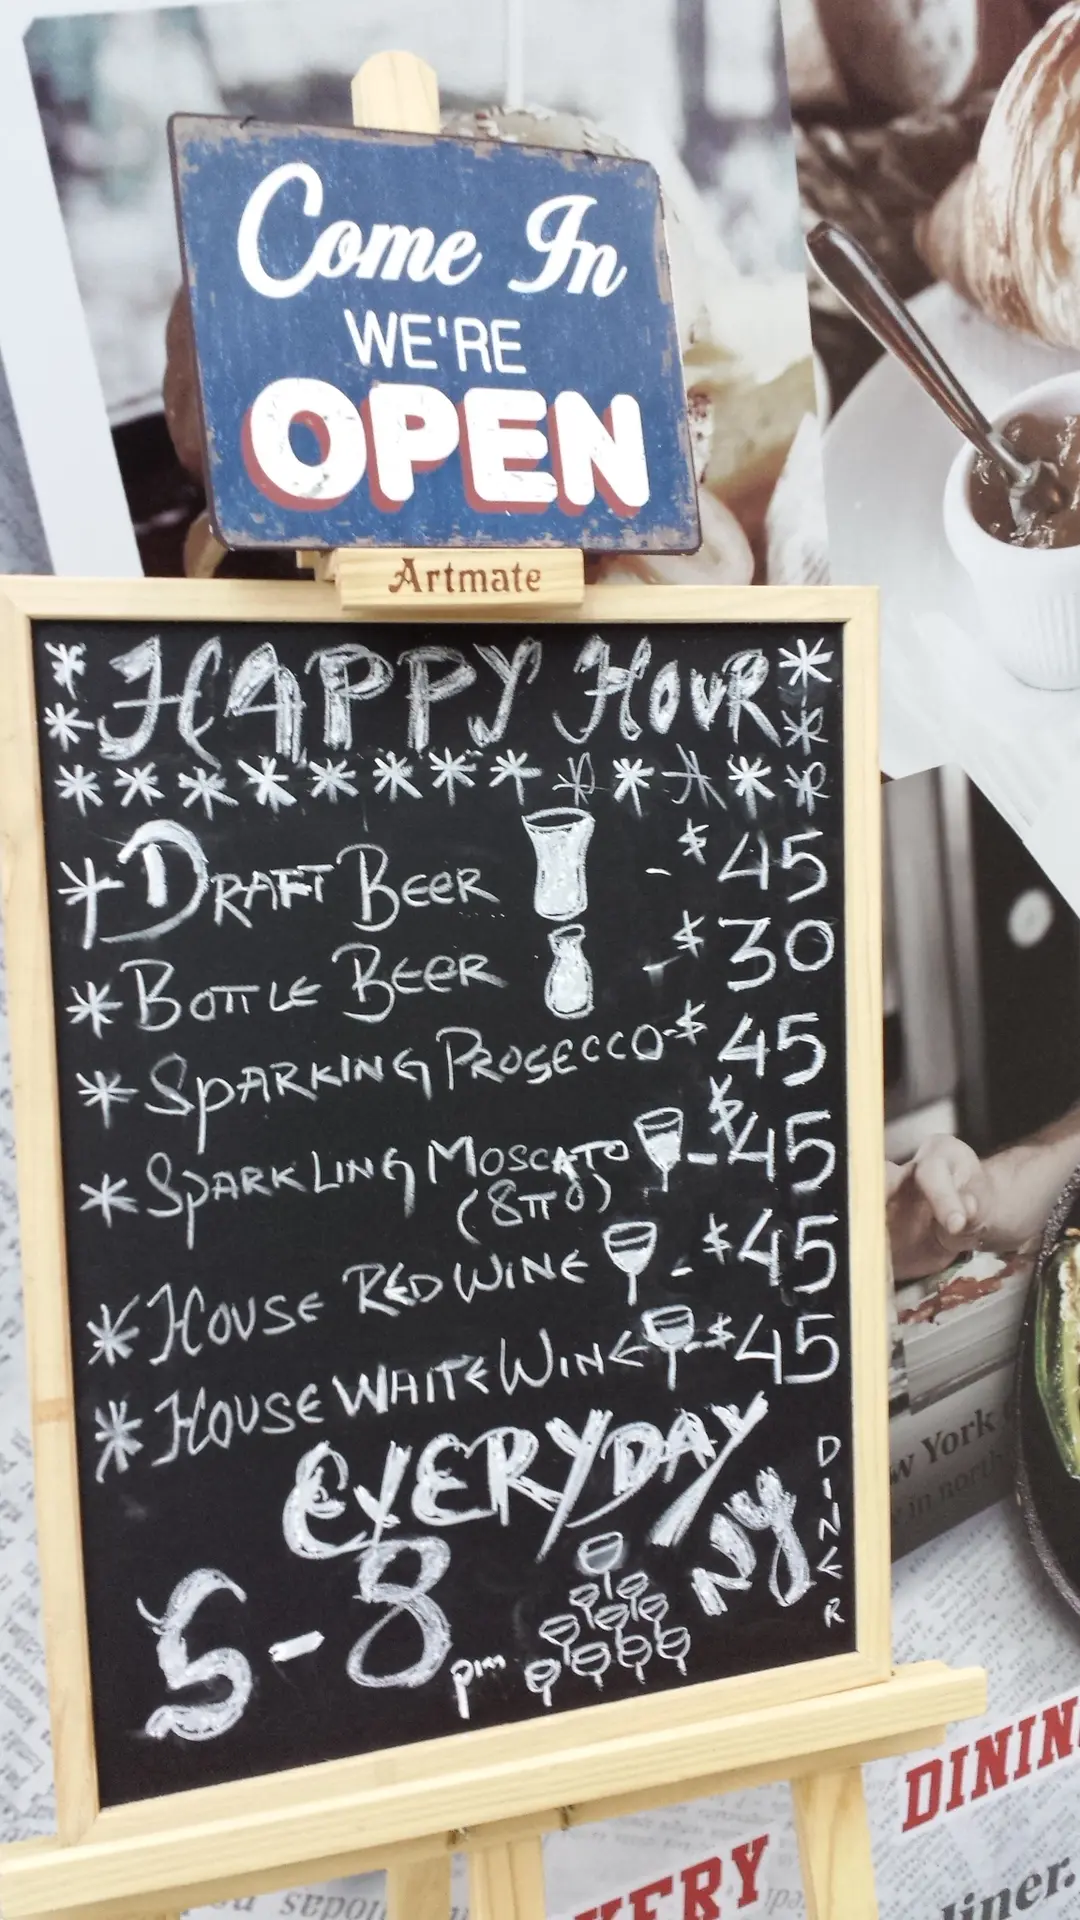 Come In
WE'RE
OPEN
Artmate
* HAPPY HOUR *
* *
* * * * * * * * * * * * *
* DRAFT BEER - $45
* BOTTLE BEER - $30
* SPARKING PROSECCO - $45
* SPARKLING MOSCATO - $45
* HOUSE RED WINE - $45
* HOUSE WHITE WINE - $45
EVERYDAY
5-8 pm
NY
DINER
w York
in north
DININ
ERY
liner.